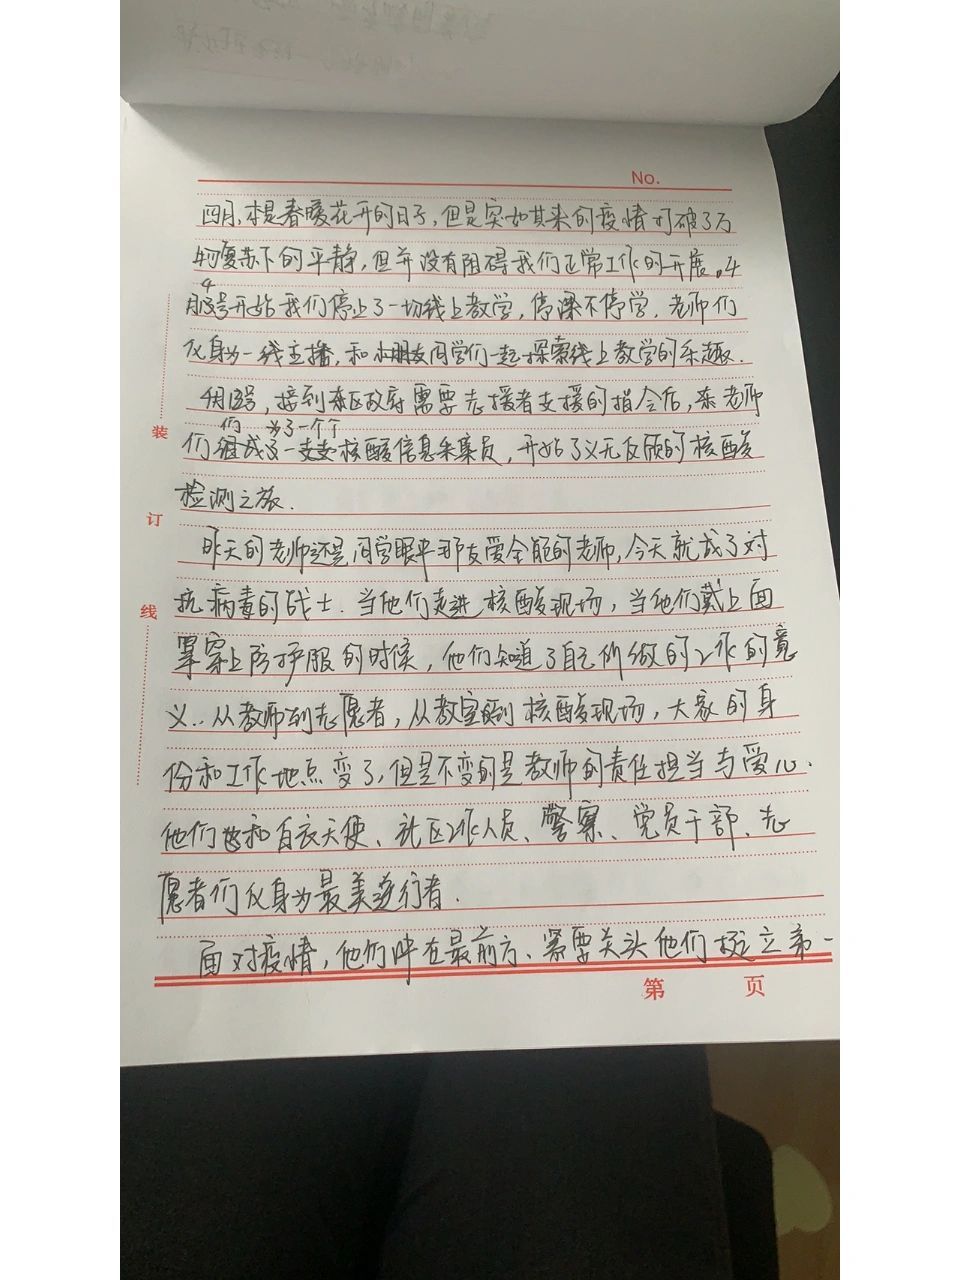 No.
四月,本是春暖花开的日子,但是突如其来的疫情打破了万
物复苏下的平静,但并没有阻碍我们正常工作的开展。4
月4号开始我们停止了一切线上教学,停课不停学,老师们
化身为一线主播,和小朋友同学们一起探索线上教学的乐趣.
接到东区政府需要志援者支援的指令后,东老师
们 为了一个个
们组成了一支支核酸信息采集员,开始了义无反顾的核酸
检测之旅.
昨天的老师还是同学眼中那友爱全能的老师,今天就成了对
抗病毒的战士.当他们走进核酸现场,当他们戴上面
罩穿上防护服的时候,他们知道了自己所做的工作的意
义..从教师到志愿者,从教室到核酸现场,大家的身
份和工作地点变了,但是不变的是教师的责任担当与爱心.
他们也和白衣天使、社区工作人员、警察、党员干部、志
愿者们化身为最美逆行者.
面对疫情,他们冲在最前方、紧要关头他们挺立第一
装
订
线
第 页